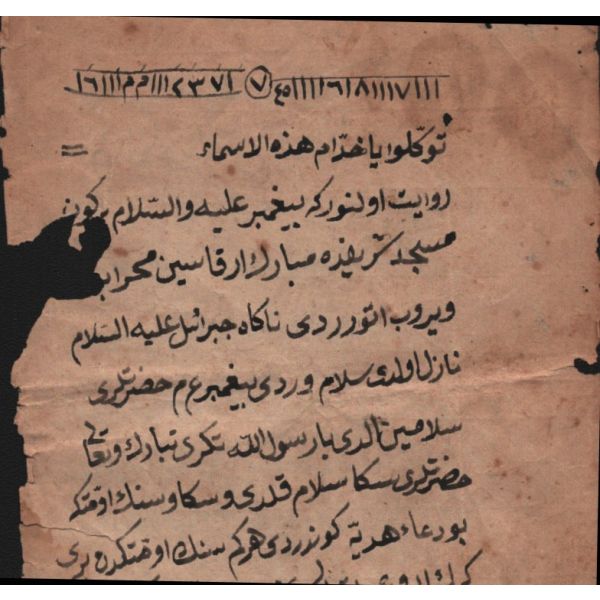 توكّلوا يا خدّام هذه الاسماء
روايت اولنور كه پيغمبر عليه والسّلام بر كون
مسجد شريفده مبارك ارقاسين محرابه
ويروب اتوردى ناكاه جبرائل عليه السّلام
نازل اولدى سلام وردى پيغمبر ع م حضرتلرى
سلامين الدى يا رسول الله تكرى تبارك وتعالى
حضرتلرى سكا سلام قلدى وسكا وسنك اوقتكه
بو دعاء هدية كوندردى هركم سنك اوقتكدن برى